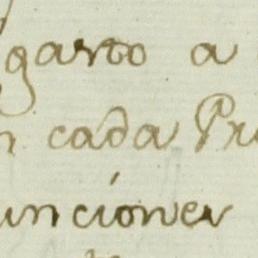 garto a
n cada Pr
unciones